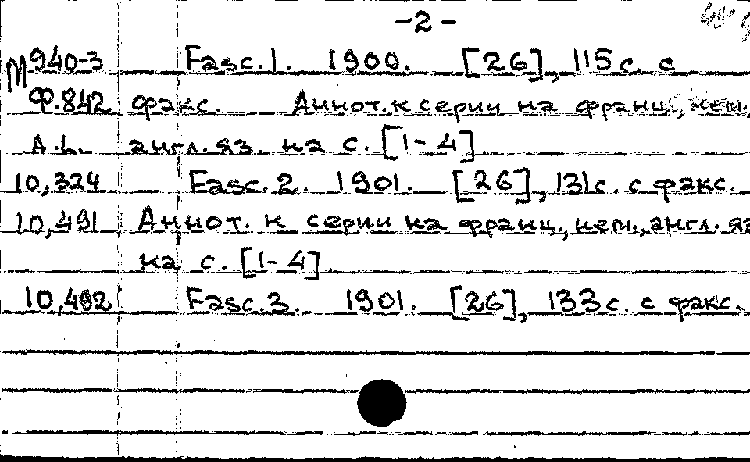 -2-
М 940-3 Fasc. 1. 1900. [26], 115 с. с
Ф.842 факс. Аннот. к серии на франц., нем.,
A.L. англ. яз. на с. [1-4]
10,324 Fasc. 2. 1901. [26], 131 с. с факс.
10,491 Аннот. к серии на франц., нем., англ. яз
на с. [1-4]
10,492 Fasc. 3. 1901. [26], 133 с. с факс.